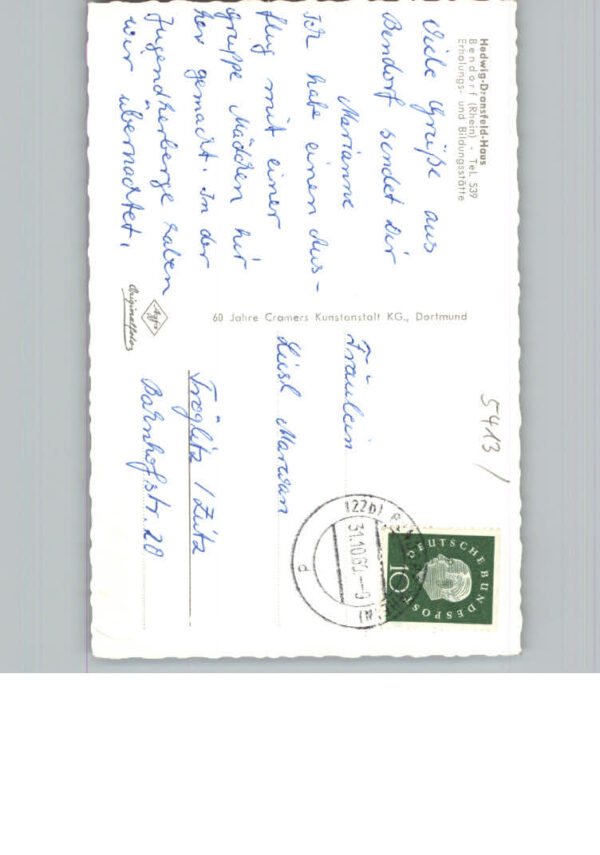 Hedwig-Dransfeld-Haus
Bendorf (Rhein) - Tel. 539
Erholungs- und Bildungsstätte
Viele Grüße aus
Bendorf sendet Dir
Marianne
Ich habe einen Aus-
flug mit einer
Gruppe Mädchen hir
her gemacht. In der
Jugendherberge haben
wir übernachtet.
Agfa
Originalfoto
60 Jahre Cramers Kunstanstalt KG., Dortmund
5413/
DEUTSCHE BUNDESPOST
10
(22b)
31.10.60
d
Fräulein
Liesl
Tröglitz / Zeitz
Bahnhofstr. 20